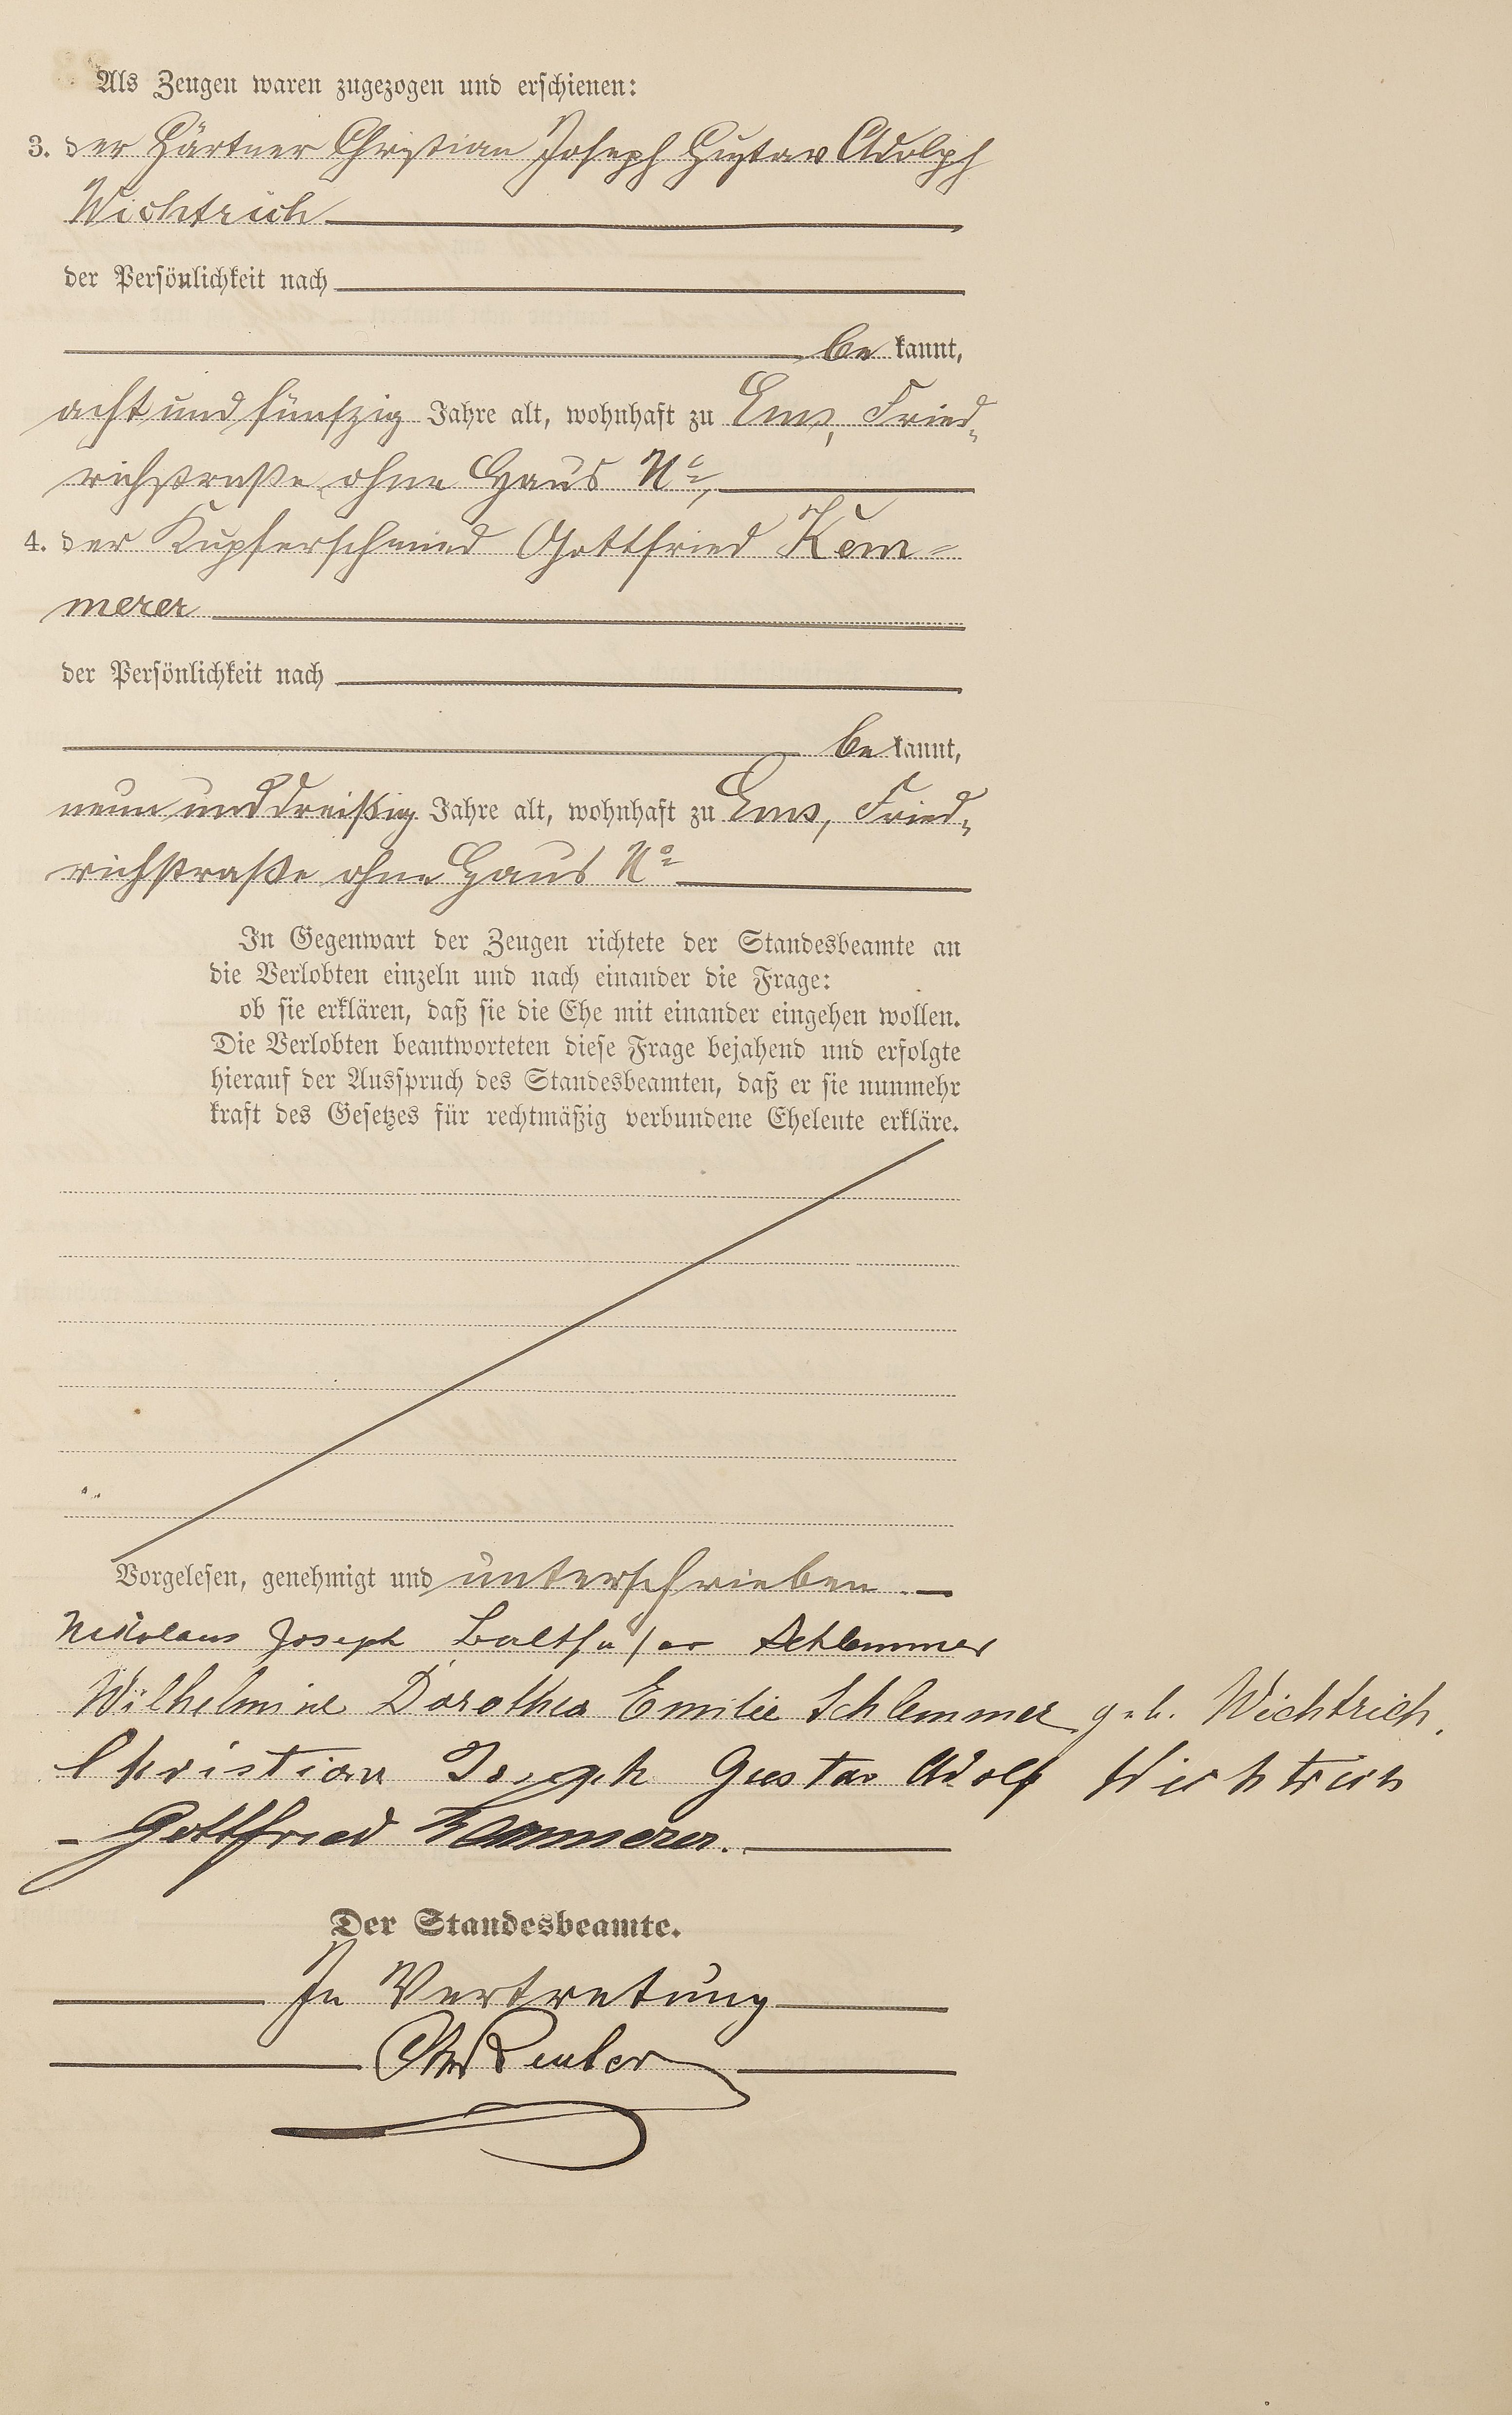 Als Zeugen waren zugezogen und erschienen:
3. der Gärtner Christian Joseph Gustav Adolph
Wichtrich
der Persönlichkeit nach
be kannt,
acht und fünfzig Jahre alt, wohnhaft zu Ems, Fried-
richstraße ohne Haus No,
4. der Kupferschmied Gottfried Kem-
merer
der Persönlichkeit nach
be kannt,
neun und dreißig Jahre alt, wohnhaft zu Ems, Fried-
richstraße ohne Haus No
In Gegenwart der Zeugen richtete der Standesbeamte an
die Verlobten einzeln und nach einander die Frage:
ob sie erklären, daß sie die Ehe mit einander eingehen wollen.
Die Verlobten beantworteten diese Frage bejahend und erfolgte
hierauf der Ausspruch des Standesbeamten, daß er sie nunmehr
kraft des Gesetzes für rechtmäßig verbundene Eheleute erkläre.
Vorgelesen, genehmigt und unterschrieben
Nikolaus Joseph Balthasar Schlemmer
Wilhelmine Dorothea Emilie Schlemmer geb. Wichtrich.
Christian Joseph Gustav Adolf Wichtrich
Gottfried Kemmerer.
Der Standesbeamte.
In Vertretung